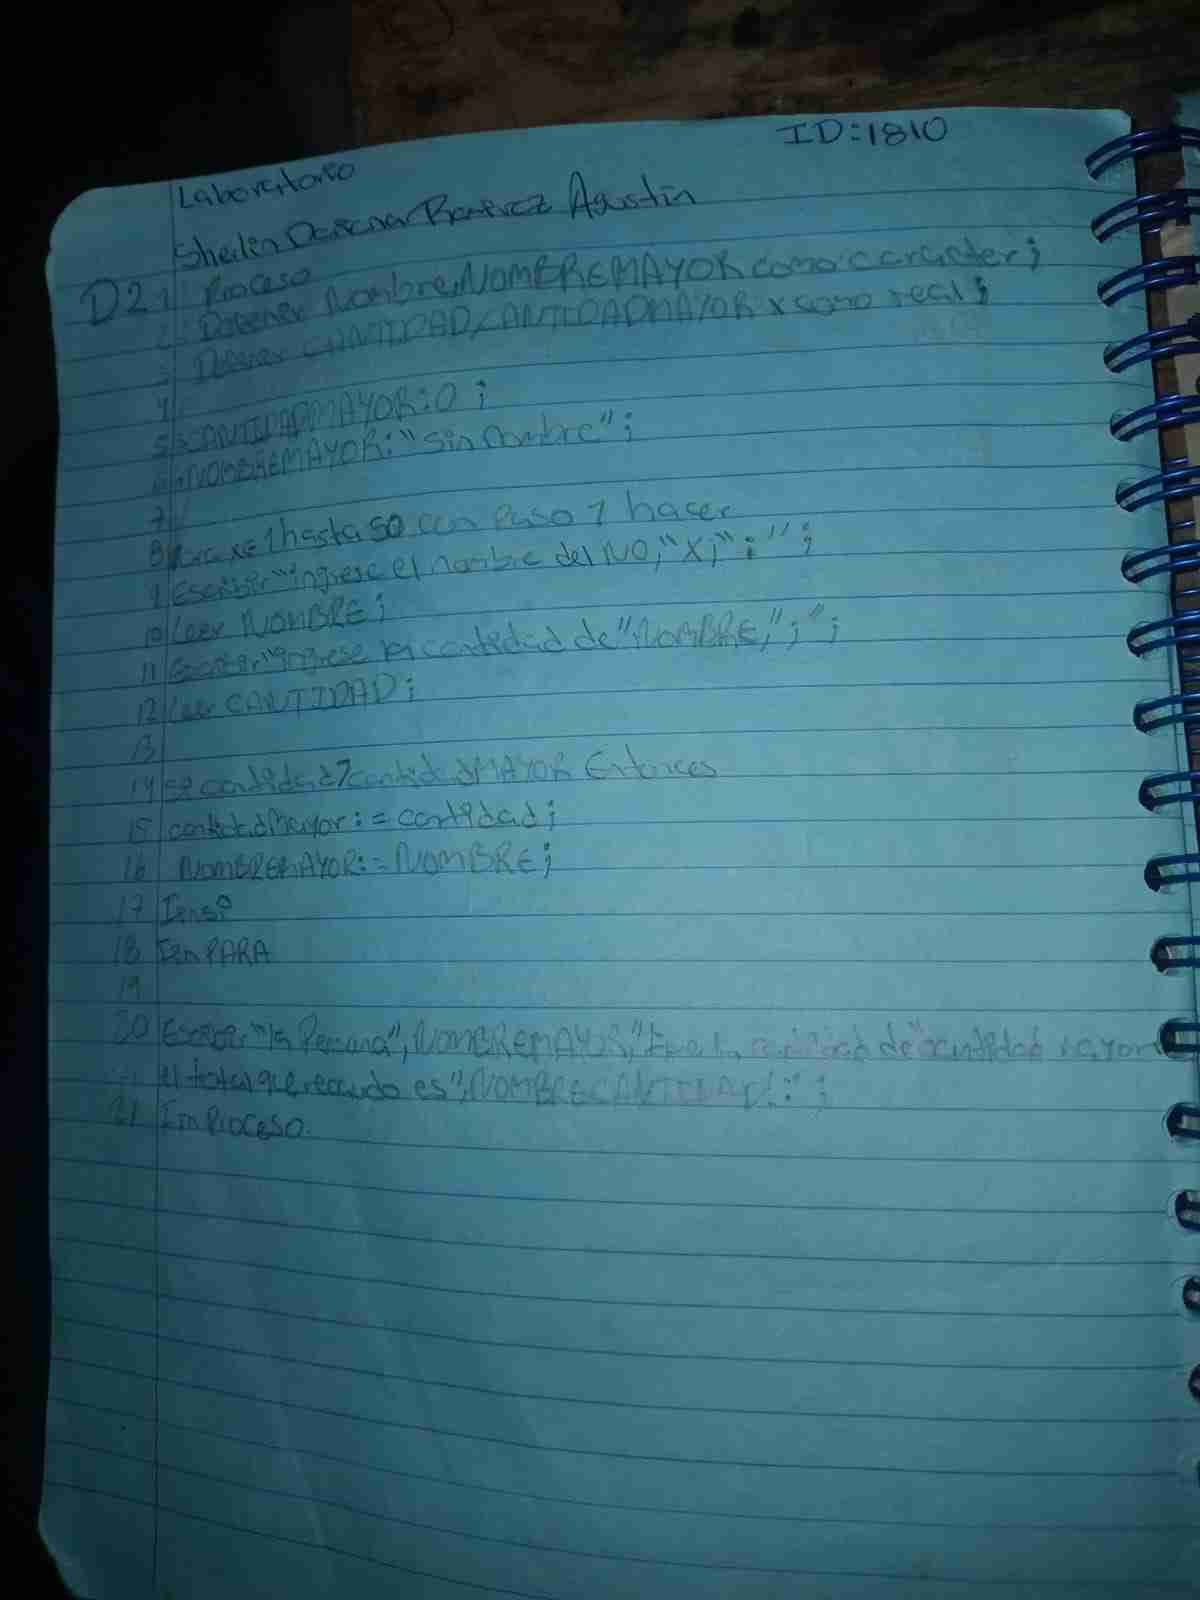 ID:1810
Laboratorio
Sheilin Ramirez Agustin
D2 1 Proceso
2 Nombre, NOMBREMAYOR como caracter;
3 CANTIDAD, CANTIDADMAYOR x como real;
4
5 CANTIDADMAYOR:0;
6 NOMBREMAYOR:"sin nombre";
7
8 Para x=1 hasta 50 con Paso 1 hacer
9 Escriber "ingrese el nombre del NO,"X;":";
10 Leer NOMBRE;
11 Escriber "ingrese la cantidad de "NOMBRE,";";
12 Leer CANTIDAD;
13
14 si cantidad7cantidadMAYOR Entonces
15 cantidadMayor:=cantidad;
16 NOMBREMAYOR:=NOMBRE;
17 Finsi
18 FinPARA
19
20 Escriber "la Persona",NOMBREMAYOR," la cantidad de" cantidad mayor
el total que recaudo es",NOMBRECANTIDAD:";
21 FinProceso.